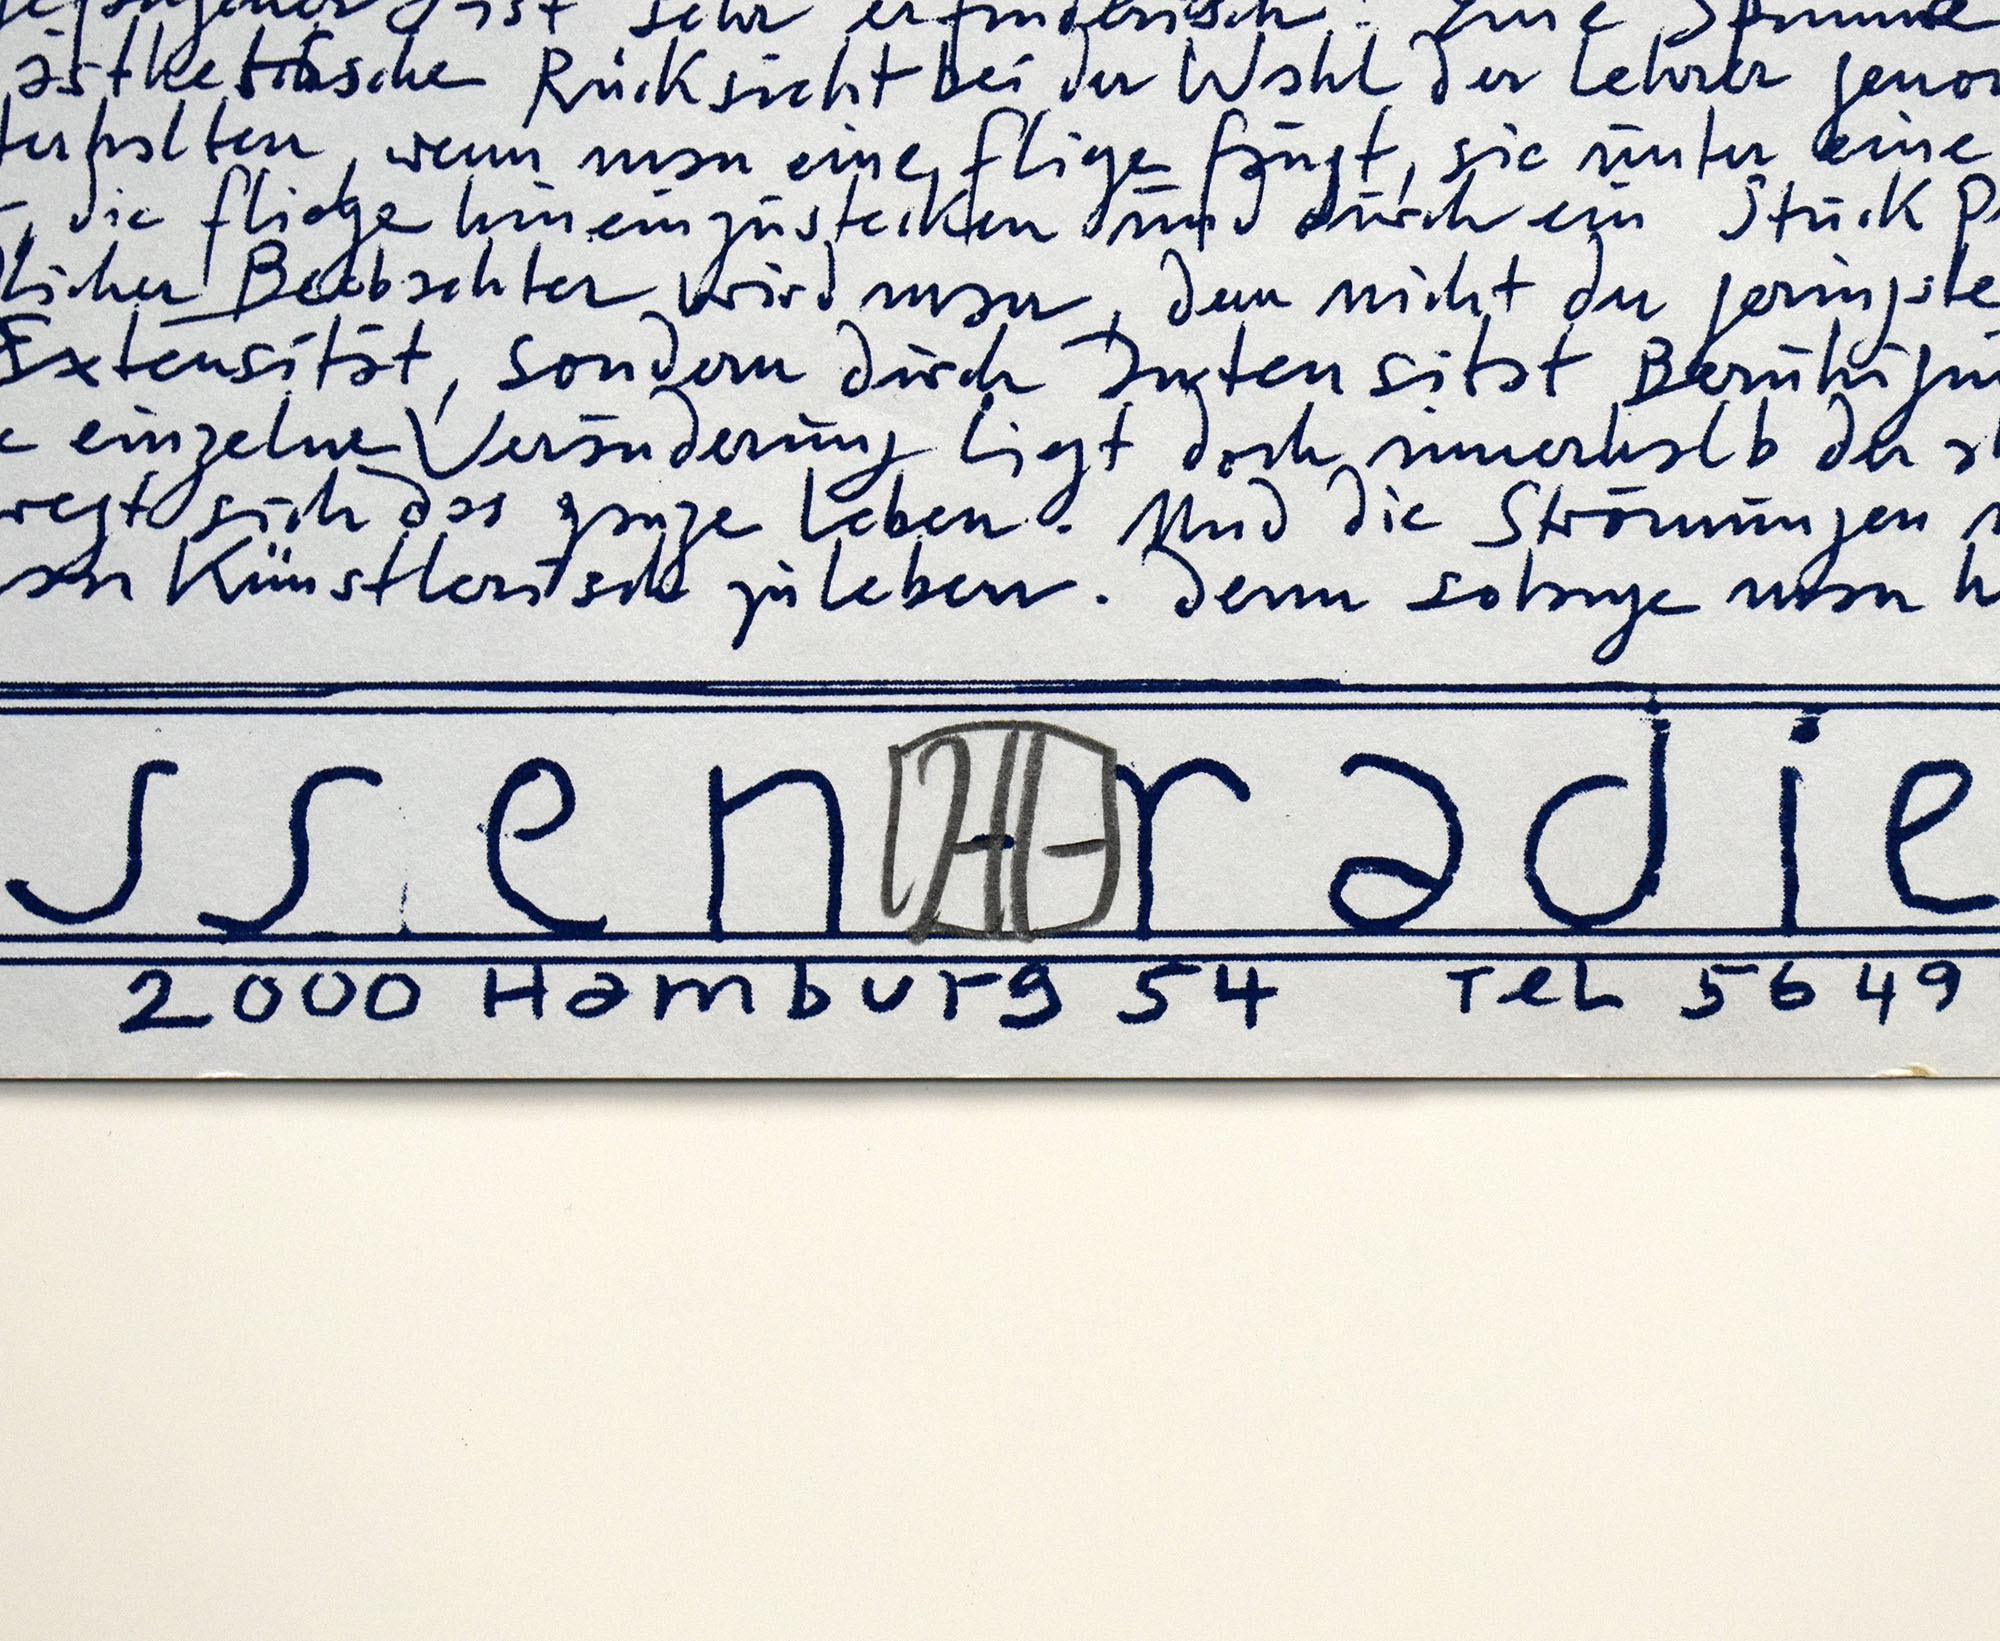 ist sehr erfinderisch. Eine Spinne
ästhetische Rücksicht bei der Wahl der Lehrer genom
terhalten, wenn man eine Fliege fängt, sie unter eine
, die Fliege hineinzustecken und durch ein Stück P
licher Beobachter wird man, dem nicht der geringste
Extensität, sondern durch Intensität Beruhigun
e einzelne Veränderung liegt doch innerhalb der
wegt sich das ganze Leben. Und die Strömungen
man Künstlerisch zu leben. Denn solange man h
ssen-radie
2000 Hamburg 54 Tel 5649